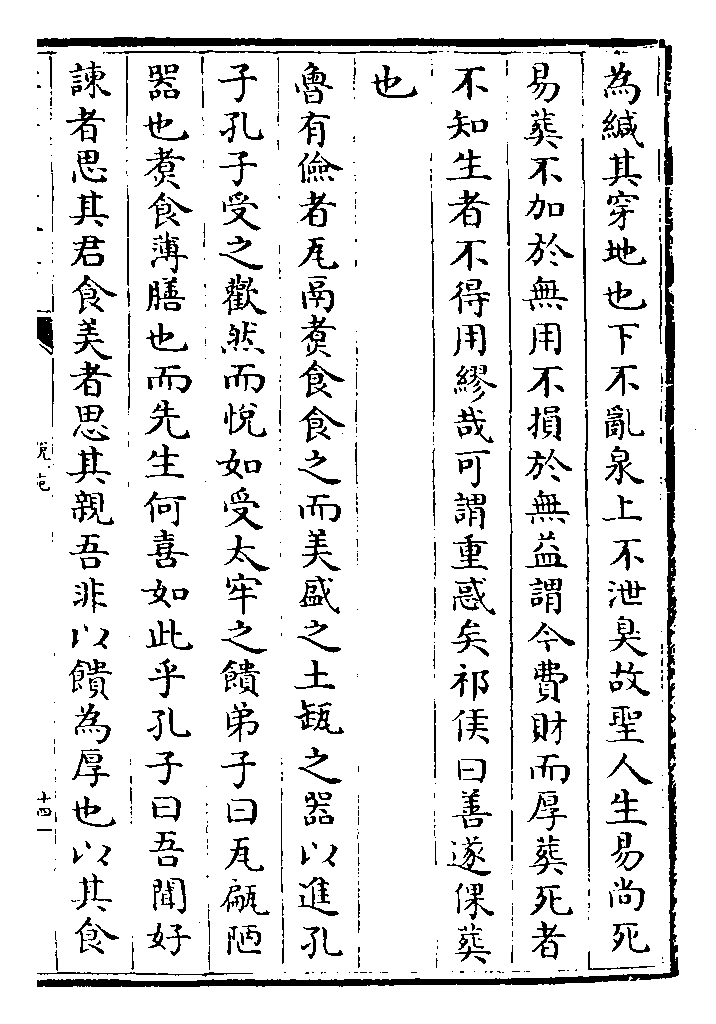 為緘其穿地也下不亂泉上不泄臭故聖人生易尚死
易葬不加於無用不損於無益謂今費財而厚葬死者
不知生者不得用繆哉可謂重惑矣祁侯曰善遂倮葬
也
魯有儉者瓦鬲煑食食之而美盛之土缻之器以進孔
子孔子受之歡然而悅如受太牢之饋弟子曰瓦甂陋
器也煑食薄膳也而先生何喜如此乎孔子曰吾聞好
諫者思其君食美者思其親吾非以饋為厚也以其食
說苑
十四